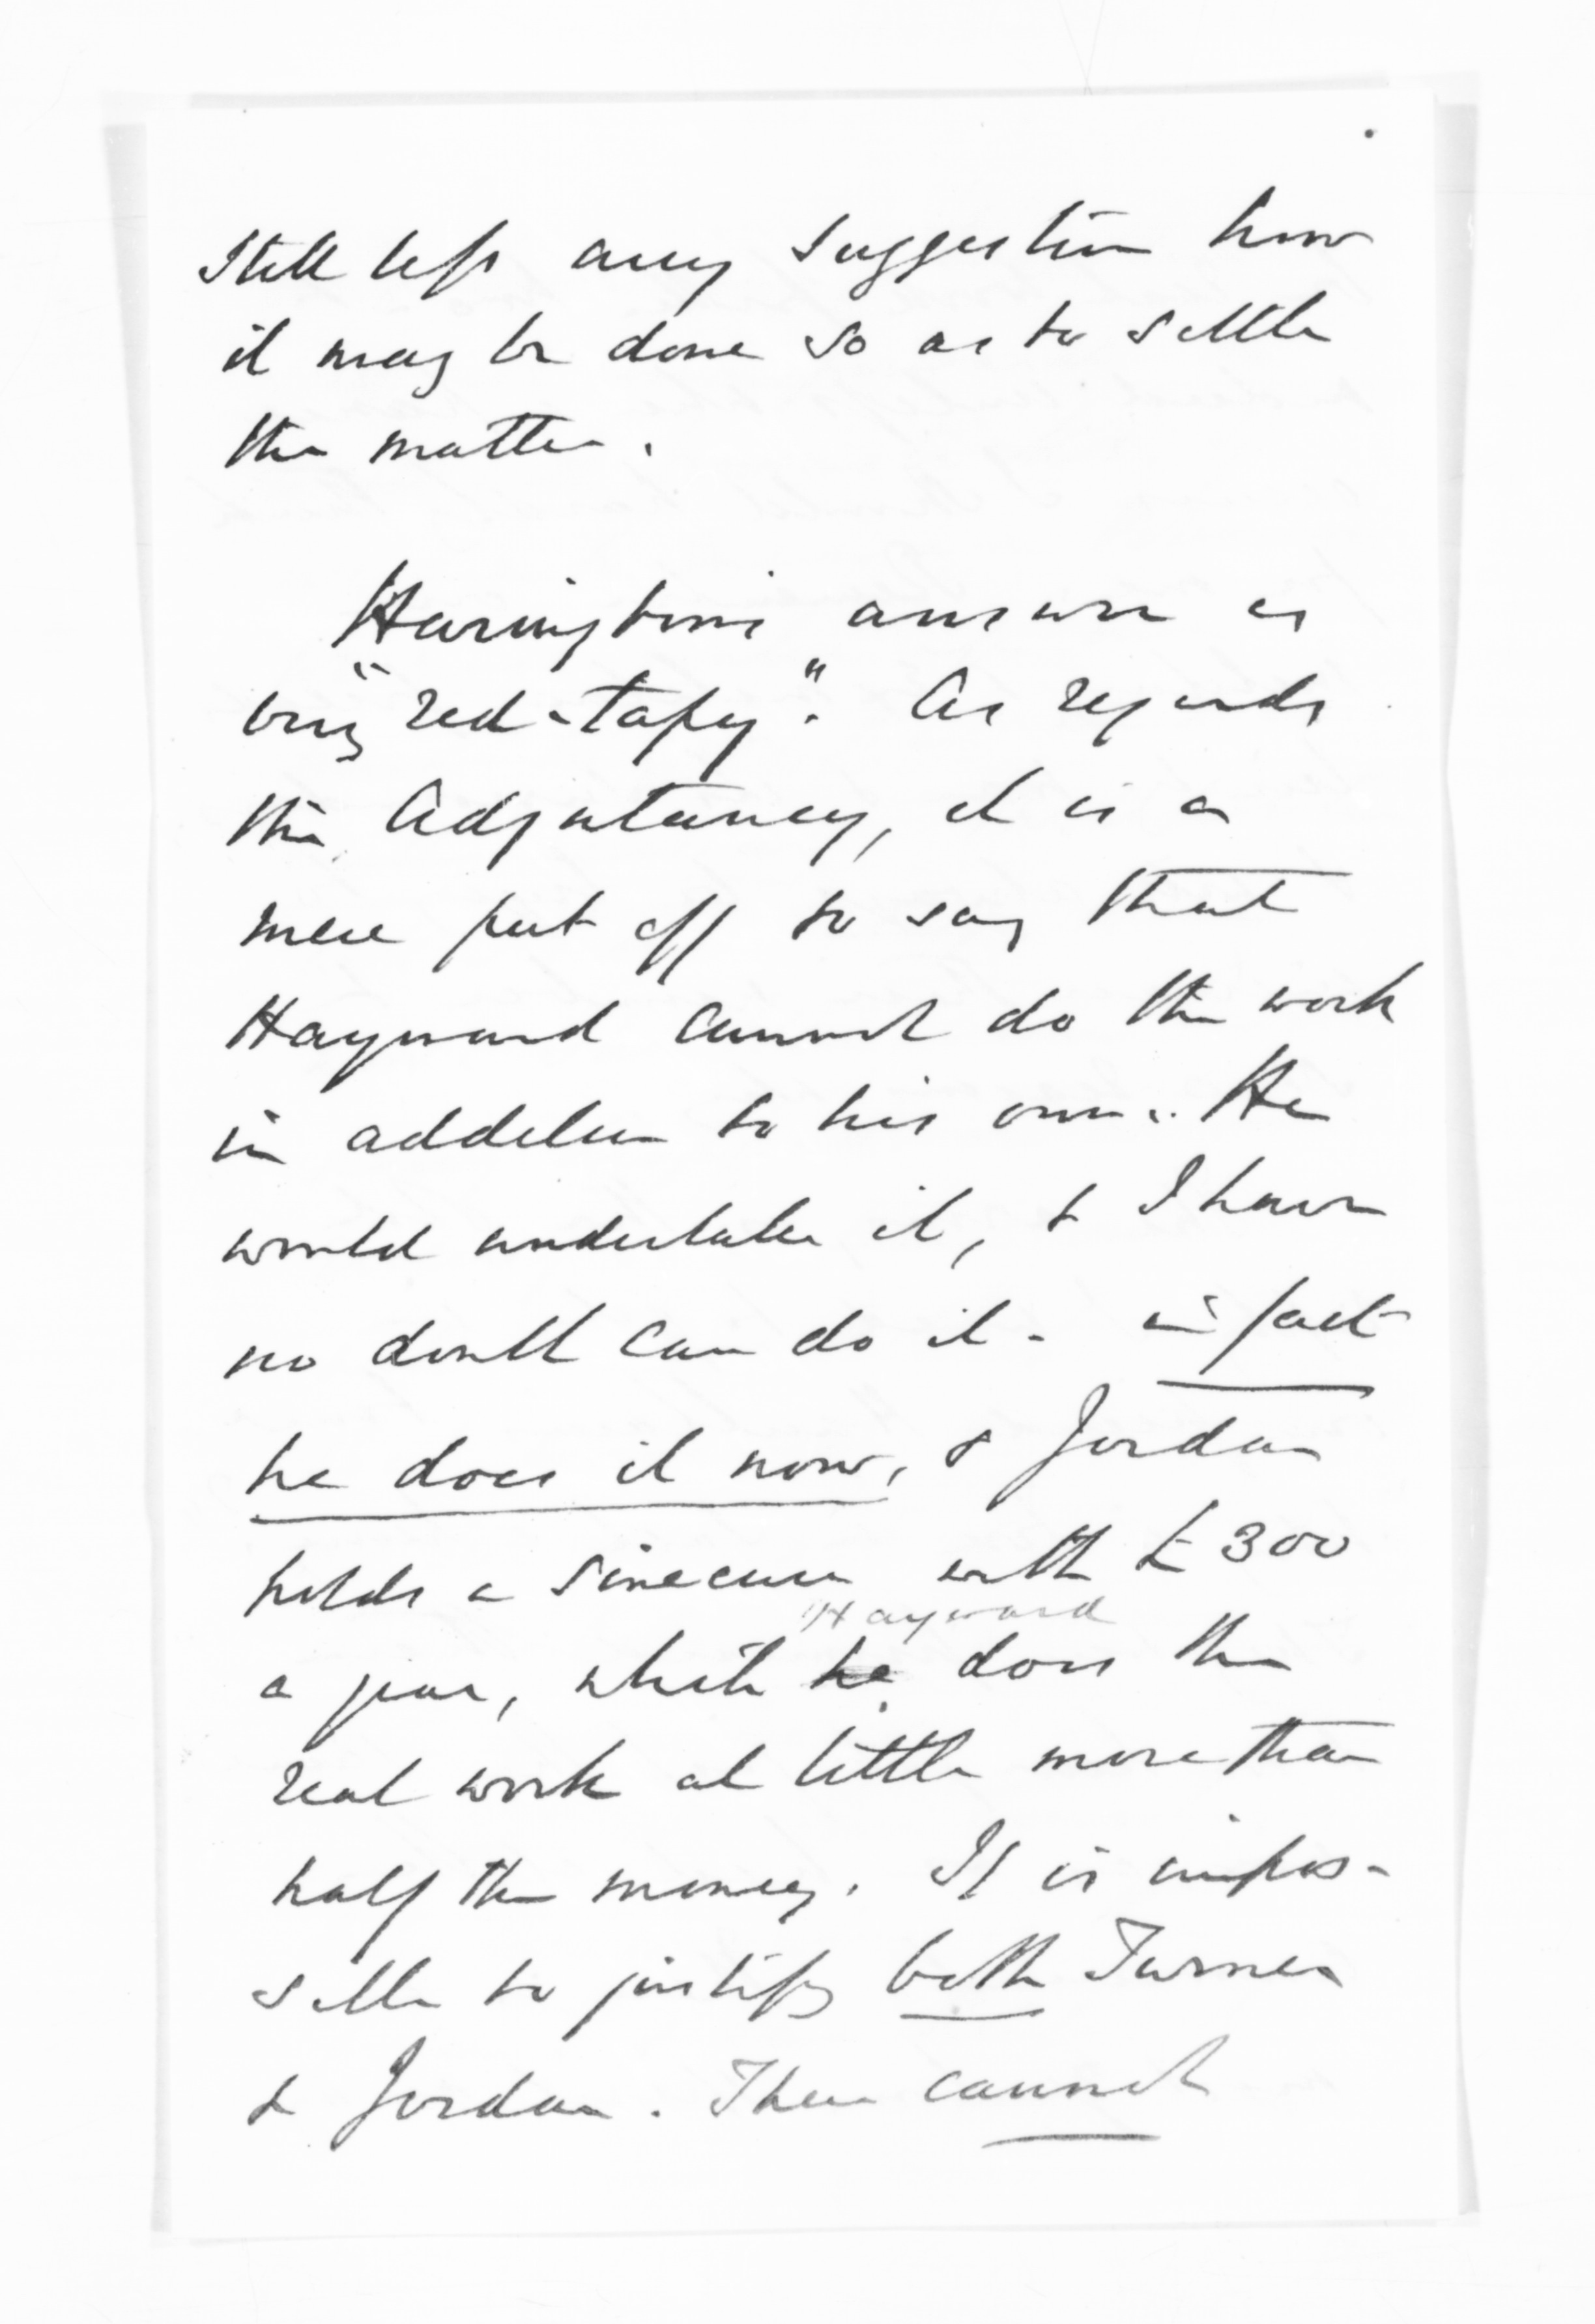 Still less any suggestion how
it may be done so as to settle
the matter.
Harington's answer is
very "red-tapey". As regards
the Adjutancy, it is a
mere put off to say that
Hayward cannot do the work
in addition to his own. He
would undertake it, & I have
no doubt can do it - in fact
he does it now, & Jordan
holds a sinecure with £300
Hayward
a year, while he does the
real work at little more than
half the money. It is impos-
sible to justify both Turner
& Jordan. There cannot